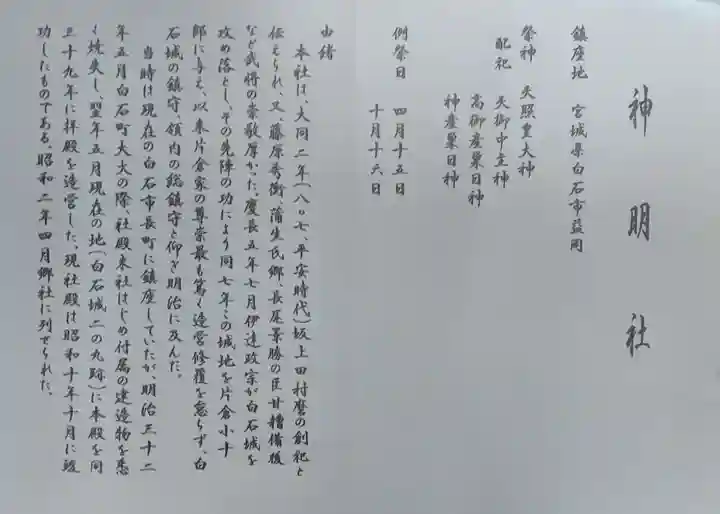 神明社
鎮座地　宮城県白石市益岡
祭神　天照皇大神
配祀　天御中主神
高御産巣日神
神産巣日神
例祭日　四月十五日
十月十六日
由緒
本社は、大同二年(八〇七、平安時代)坂上田村麿の創祀と
伝えられ、又、藤原秀衡、蒲生氏郷、長尾景勝の臣甘糟備後
など武将の崇敬厚かった。慶長五年七月伊達政宗が白石城を
攻め落とし、その先陣の功により同七年この城地を片倉小十
郎に与え、以来片倉家の尊崇最も篤く造営修覆を怠らず、白
石城の鎮守、領内の総鎮守と仰ぎ明治に及んだ。
当時は現在の白石市長町に鎮座していたが、明治三十二
年五月白石町大火の際、社殿末社はじめ付属の建造物を悉
く焼失し、翌年五月現在の地(白石城二の丸跡)に本殿を同
三十九年に拝殿を造営した。現社殿は昭和十年十月に竣
功したものである。昭和二年四月郷社に列せられた。